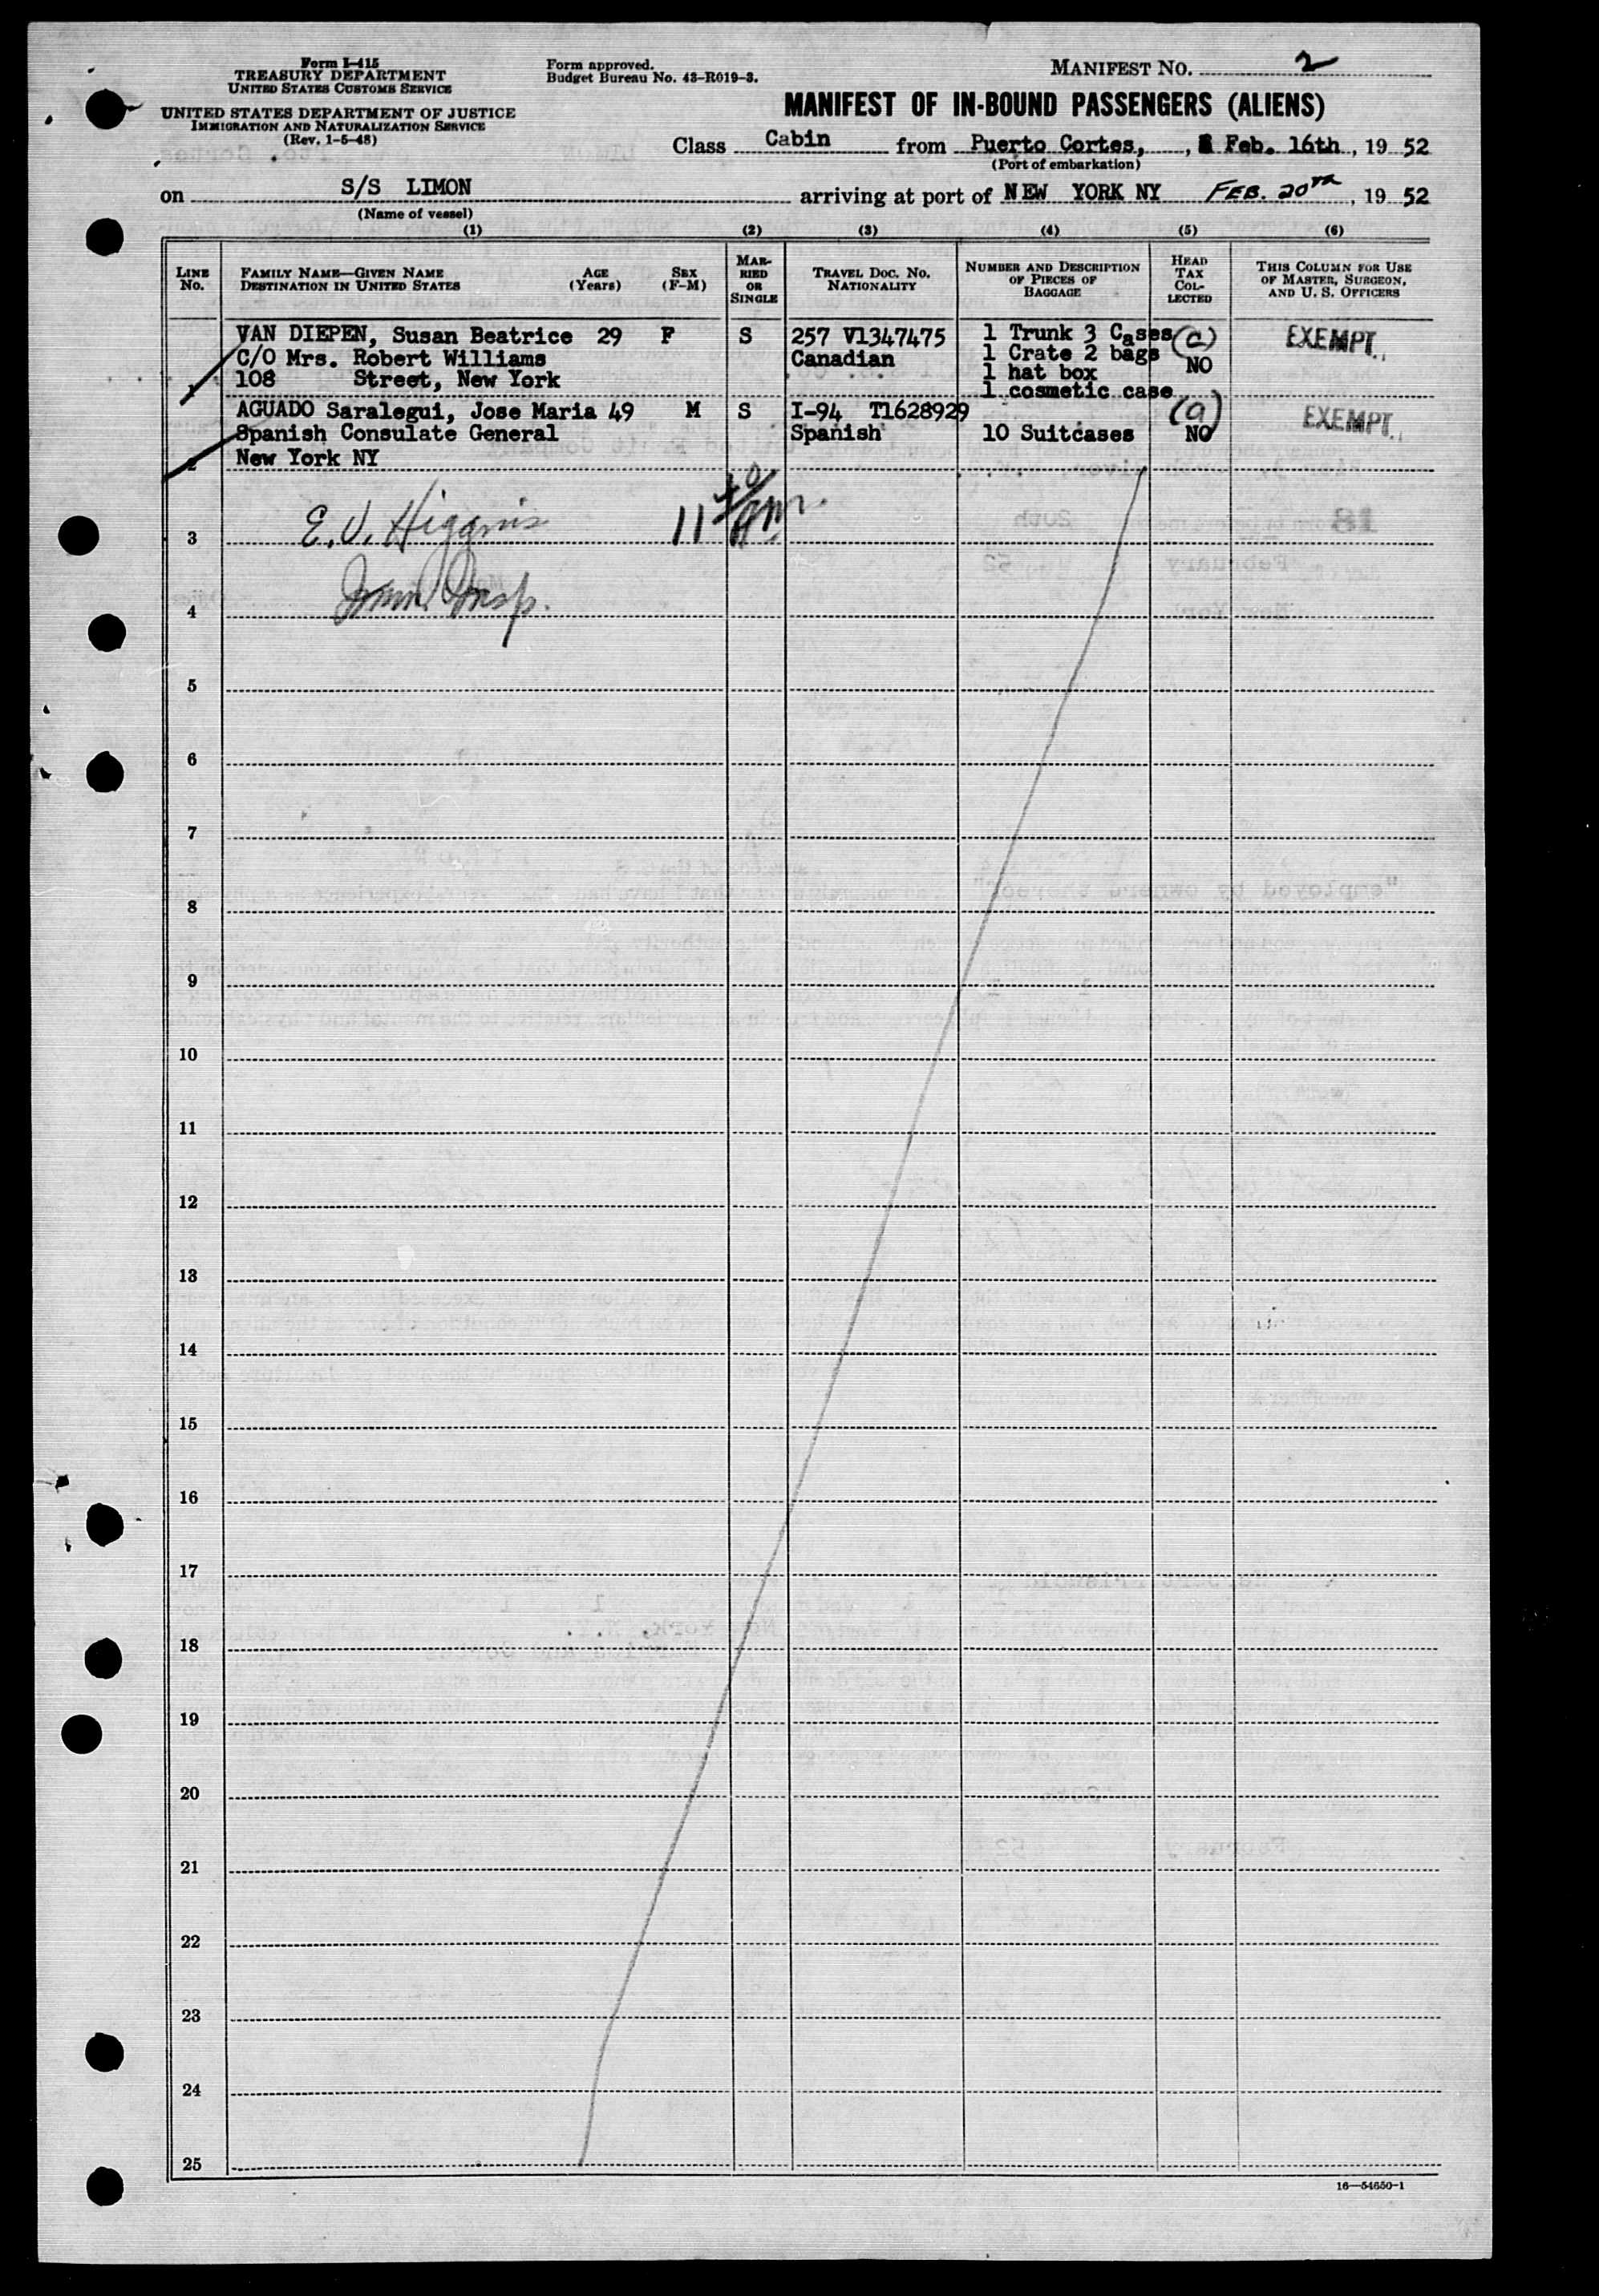 Form I-415
TREASURY DEPARTMENT
UNITED STATES CUSTOMS SERVICE
UNITED STATES DEPARTMENT OF JUSTICE
IMMIGRATION AND NATURALIZATION SERVICE
(Rev. 1-5-48)
Form approved.
Budget Bureau No. 43-R019-3.
MANIFEST NO. 2
MANIFEST OF IN-BOUND PASSENGERS (ALIENS)
Class Cabin from Puerto Cortes, , Feb. 16th, 19 52
(Port of embarkation)
on S/S LIMON arriving at port of NEW YORK NY FEB. 20TH, 19 52
(Name of vessel)
(1) (2) (3) (4) (5) (6)
LINE No.
FAMILY NAME—GIVEN NAME AGE SEX
DESTINATION IN UNITED STATES (Years) (F-M)
MARRIED OR SINGLE
TRAVEL DOC. NO.
NATIONALITY
NUMBER AND DESCRIPTION OF PIECES OF BAGGAGE
HEAD TAX COLLECTED
THIS COLUMN FOR USE OF MASTER, SURGEON, AND U. S. OFFICERS
VAN DIEPEN, Susan Beatrice 29 F S 257 V1347475 1 Trunk 3 Cases (a) EXEMPT.
C/O Mrs. Robert Williams Canadian 1 Crate 2 bags NO
108 Street, New York 1 hat box
1 1 cosmetic case
AGUADO Saralegui, Jose Maria 49 M S I-94 T1628929 (a) EXEMPT.
Spanish Consulate General Spanish 10 Suitcases NO
2 New York NY
E. V. Higgins 11 40 am.
3
Imm. Insp.
4
5
6
7
8
9
10
11
12
13
14
15
16
17
18
19
20
21
22
23
24
25
16—54650-1